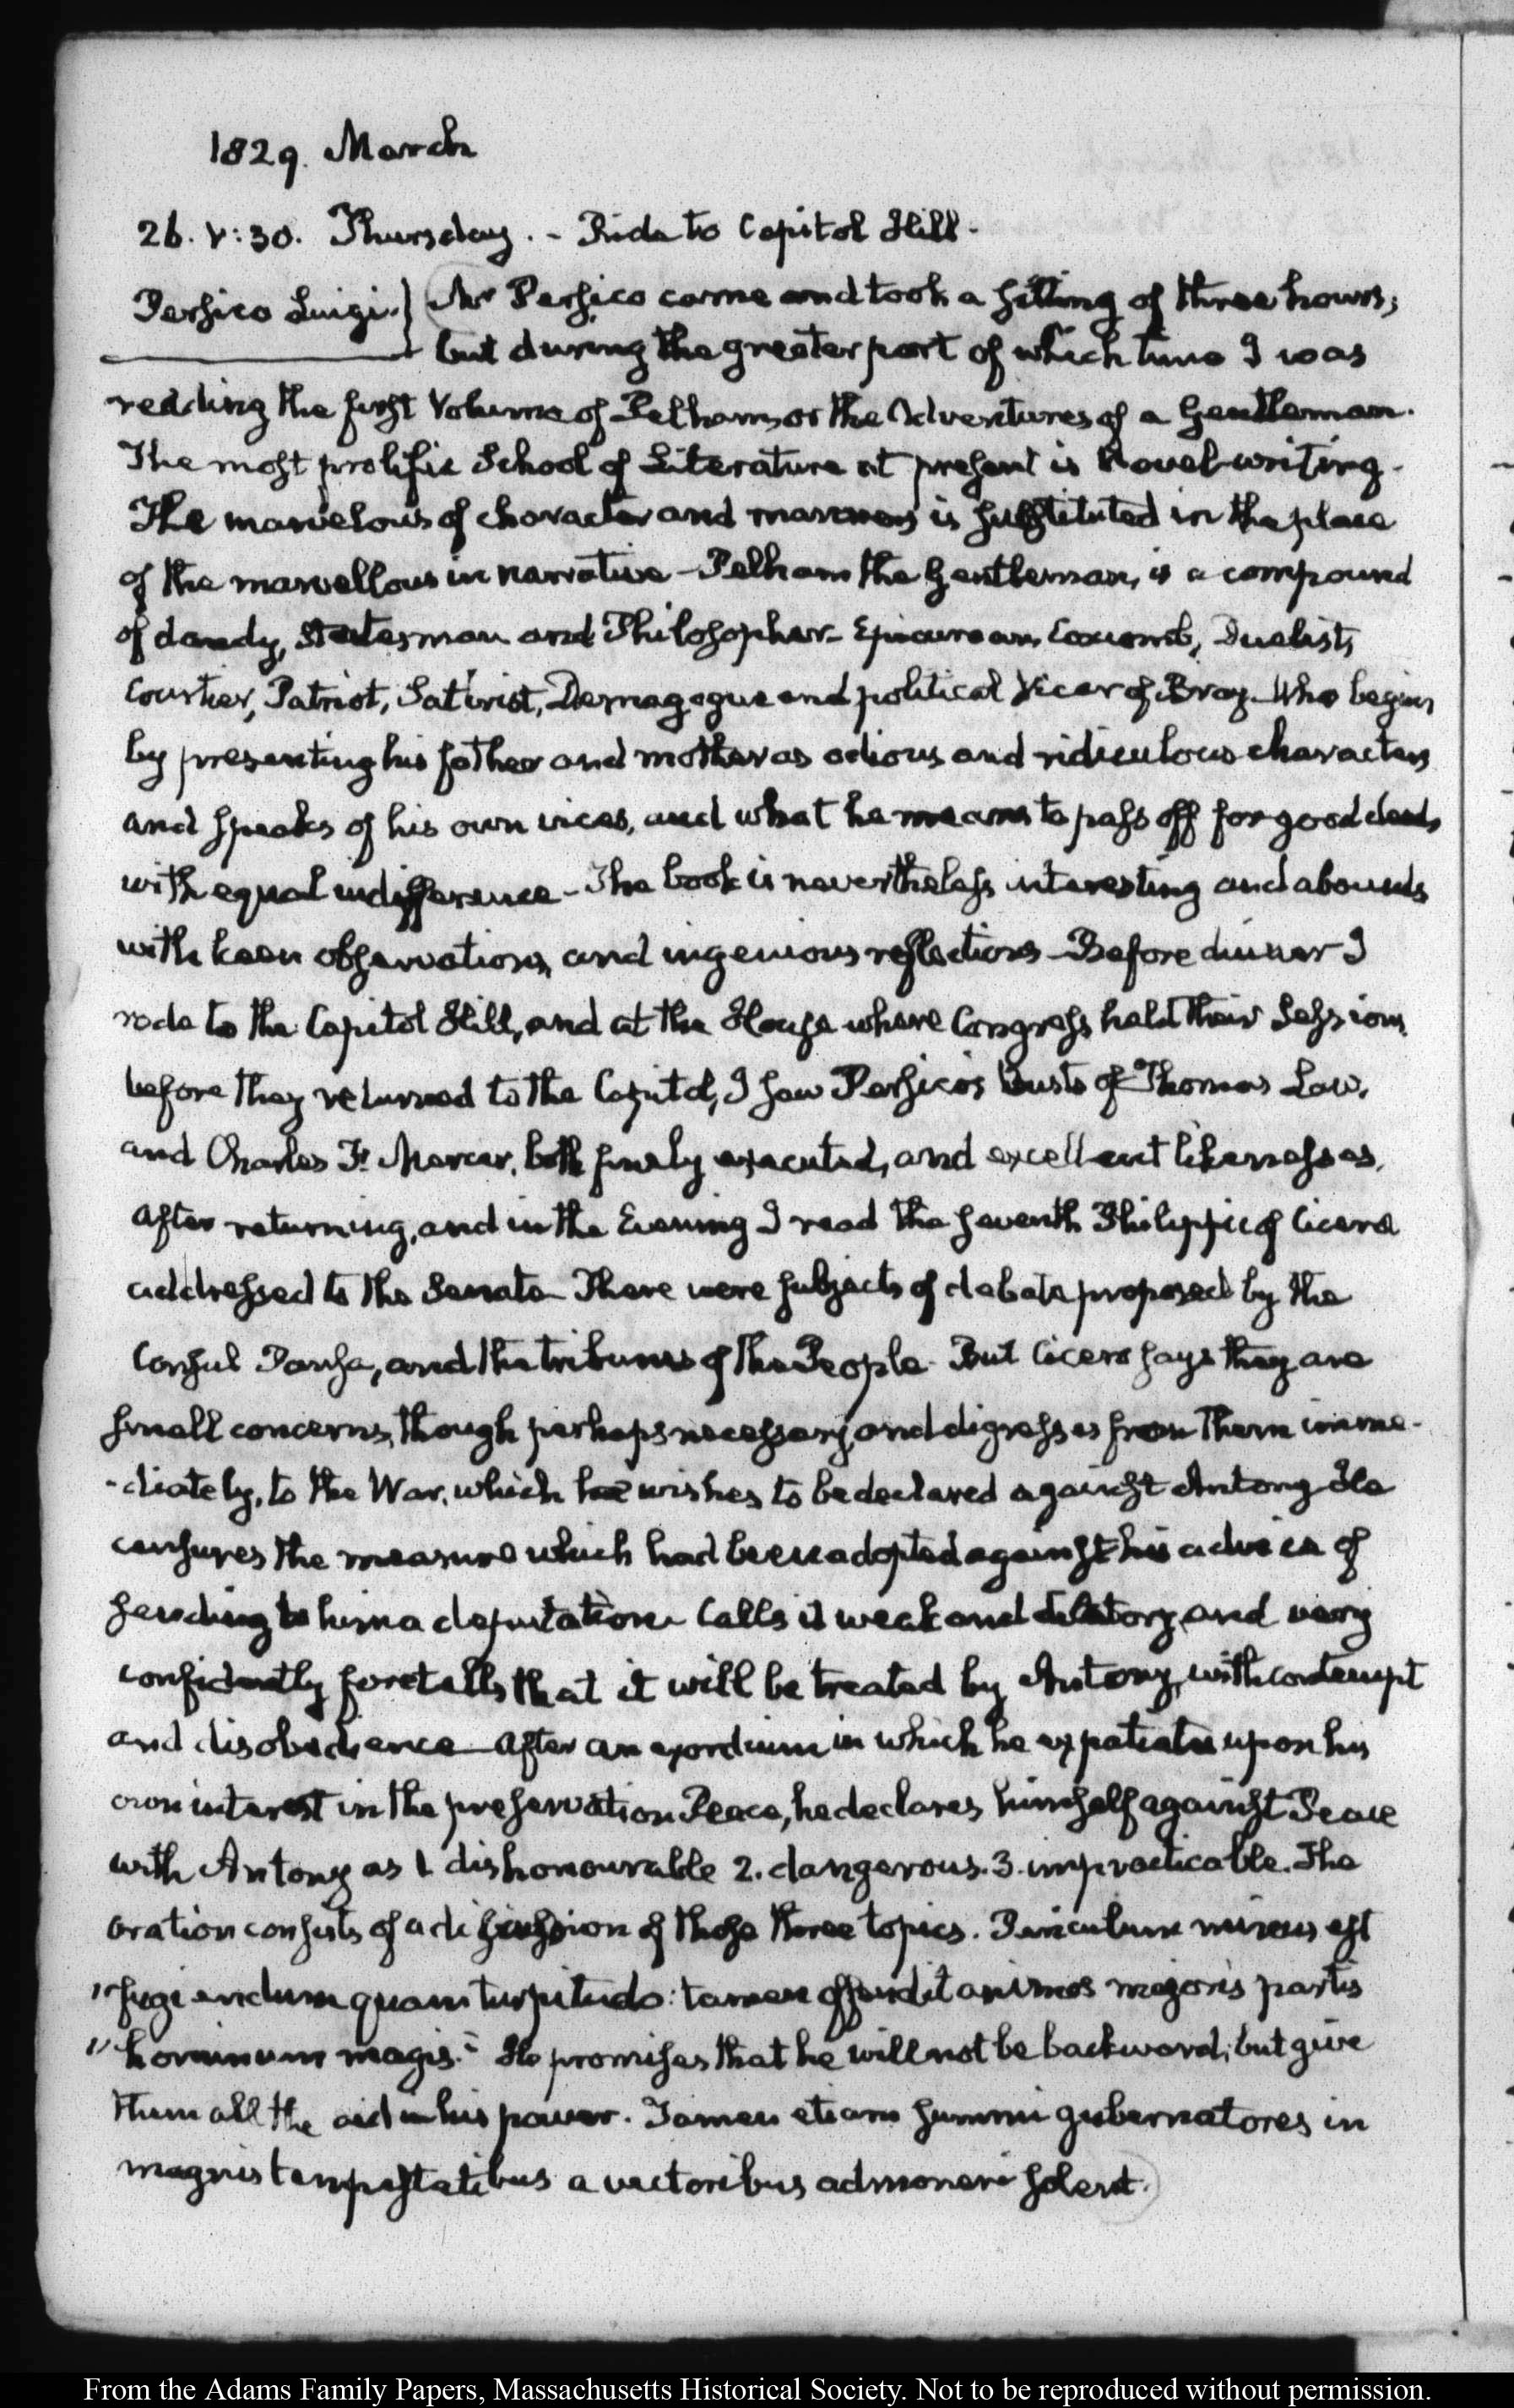 1829. March
26. V:30. Thursday. - Ride to Capitol Hill.
Persico Luigi.} Mr Persico came and took a sitting of three hours;
but during the greater part of which time I was
reading the first Volume of Pelham, or the Adventures of a Gentleman.
The most prolific School of Literature at present is Novel-writing.
The marvelous of character and manners is substituted in the place
of the marvellous in narrative - Pelham the Gentleman, is a compound
of dandy, Statesman and Philosopher - Epicurean, Coxcomb, Duelist,
Courtier, Patriot, Satirist, Demagogue and political Vicar of Bray. Who begins
by presenting his father and mother as odious and ridiculous characters
and speaks of his own vices, and what he means to pass off for good deeds,
with equal indifference - The book is nevertheless interesting and abounds
with keen observations, and ingenious reflections - Before dinner I
rode to the Capitol Hill, and at the House where Congress held their Sessions
before they returned to the Capitol, I saw Persico's busts of Thomas Law,
and Charles F. Mercer, both finely executed, and excellent likenesses.
After returning, and in the Evening I read the seventh Philippic of Cicero
addressed to the Senate - There were subjects of debate proposed by the
Consul Pansa, and the tribunes of the People. But Cicero says they are
small concerns, though perhaps necessary, and digresses from them imme-
-diately, to the War, which he wishes to be declared against Antony - He
censures the measure which had been adopted against his advice of
sending to him a deputation - Calls it weak and dilatory, and very
confidently foretells that it will be treated by Antony, with contempt
and disobedience - After an exordium in which he expatiates upon his
own interest in the preservation Peace, he declares himself against Peace
with Antony as 1. dishonourable 2. dangerous. 3. impracticable. The
oration consists of a discussion of those three topics. Periculum minus est
"fugiendum quam turpitudo: tamen offendit animos majoris partis
"hominum magis." He promises that he will not be backward; but give
them all the aid in his power. Tamen etiam summi gubernatores in
magnis tempestatibus a vectoribus admoneri solent.
From the Adams Family Papers, Massachusetts Historical Society. Not to be reproduced without permission.